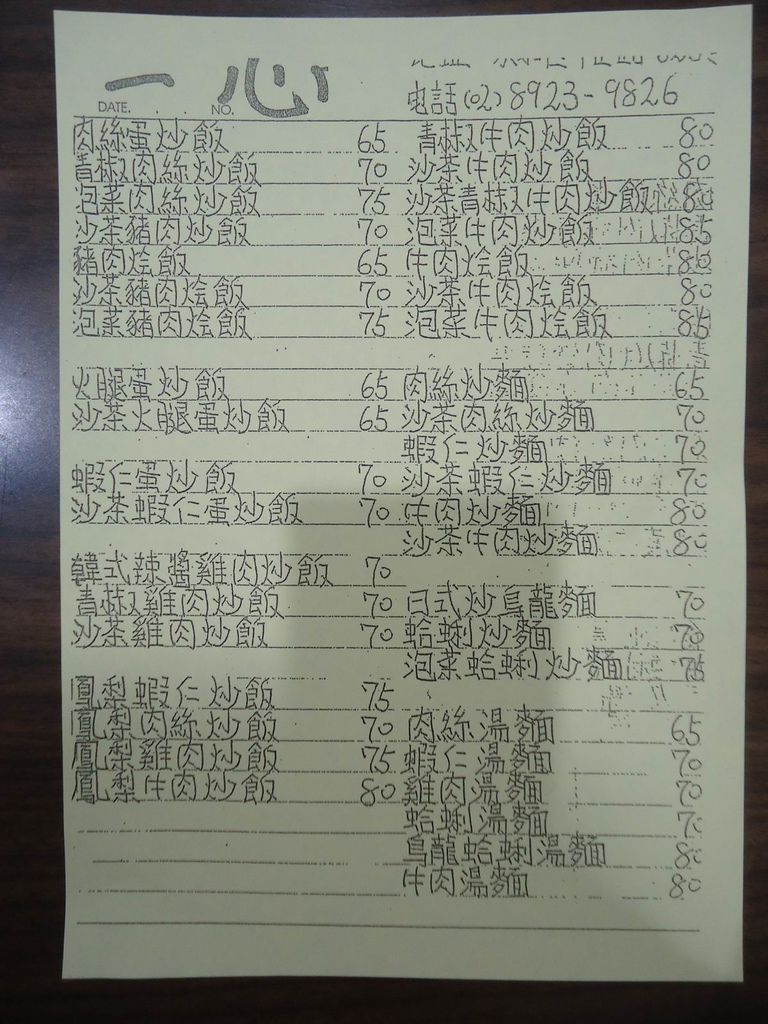 一心
電話(02)8923-9826
DATE. . . NO.
肉絲蛋炒飯 65
青椒肉絲炒飯 70
泡菜肉絲炒飯 75
沙茶豬肉炒飯 70
豬肉烩飯 65
沙茶豬肉烩飯 70
泡菜豬肉烩飯 75
火腿蛋炒飯 65
沙茶火腿蛋炒飯 65
蝦仁蛋炒飯 70
沙茶蝦仁蛋炒飯 70
韓式辣醬雞肉炒飯 70
青椒雞肉炒飯 70
沙茶雞肉炒飯 70
鳳梨蝦仁炒飯 75
鳳梨肉絲炒飯 70
鳳梨雞肉炒飯 75
鳳梨牛肉炒飯 80
青椒牛肉炒飯 80
沙茶牛肉炒飯 80
沙茶青椒牛肉炒飯 80
泡菜牛肉炒飯 85
牛肉烩飯 80
沙茶牛肉烩飯 80
泡菜牛肉烩飯 85
肉絲炒麵 65
沙茶肉絲炒麵 70
蝦仁炒麵 70
沙茶蝦仁炒麵 70
牛肉炒麵 80
沙茶牛肉炒麵 80
日式炒烏龍麵 70
蛤蜊炒麵 70
泡菜蛤蜊炒麵 75
肉絲湯麵 65
蝦仁湯麵 70
雞肉湯麵 70
蛤蜊湯麵 70
烏龍蛤蜊湯麵 80
牛肉湯麵 80